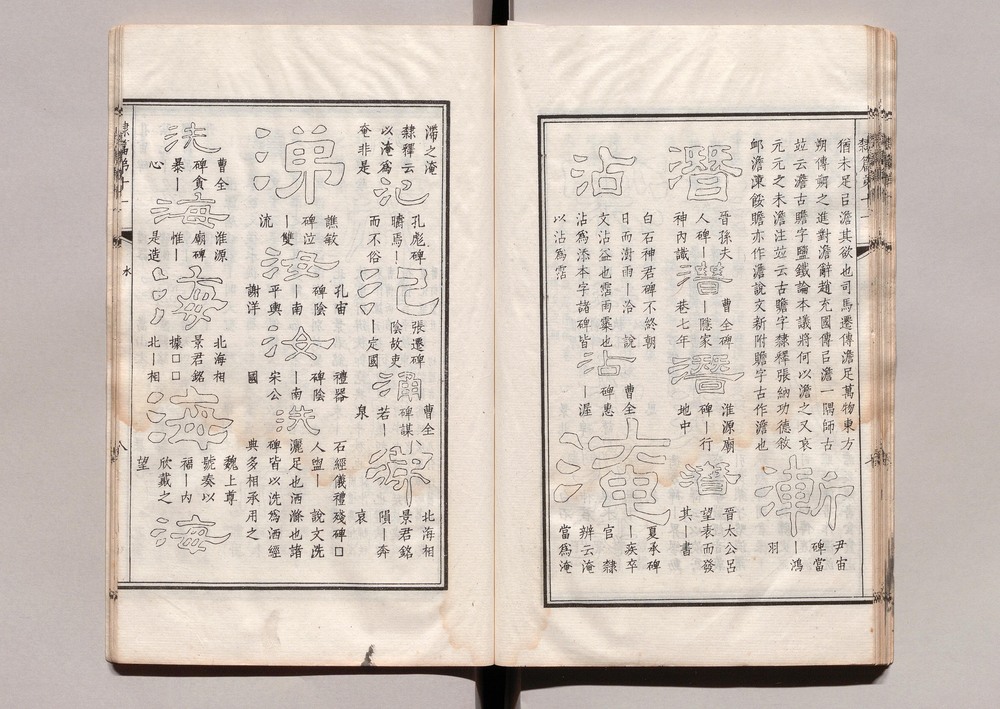 猶未足㠯澹其欲也司馬遷傳澹足萬物東方
朔傳朔之進對澹辭趙充國傳㠯澹一隅師古
竝云澹古贍字鹽鐵論本議將何以澹之又哀
元元之未澹注竝云古贍字隸釋張納功德敘
澹凍餒贍亦作澹說文新附贍字古作澹也
漸
尹宙
碑當
|鴻
羽
潛
晉孫夫
人碑|
神內識
潛
曹全碑
|隱家
巷七年
潛
淮源廟
碑|行
地中
潛
晉太公呂
望表而發
其|書
沾
白石神君碑不終朝
日而澍雨|洽 說
文沾益也霑雨䨙也
沾爲添本字諸碑皆
以沾爲霑
沾
曹全
碑惠
|渥
淹
夏承碑
|疾卒
官 隸
辨云淹
當爲淹
滯之淹
隸釋云
以淹爲
奄非是
氾
孔彪碑
焉|
而不俗
氾
張遷碑
陰故吏
|定國
涌
曹全
碑謀
若|
泉
北海相
景君銘
隕|奔
哀
涕
譙敏
碑泣
|雙
流
汝
孔宙
碑陰
|南
平輿
謝洋
汝
禮器
碑陰
|南
宋公
國
洗
石經儀禮殘碑□
人盥| 說文洗
灑足也洒滌也諸
碑皆以洗爲洒經
典多相承用之
洗
曹全
碑貪
暴|
心
海
淮源
廟碑
惟|
是造
海
北海相
景君銘
據□□
北|相
海
魏上尊
號奏以
福|內
欣戴之
望
海
水
八